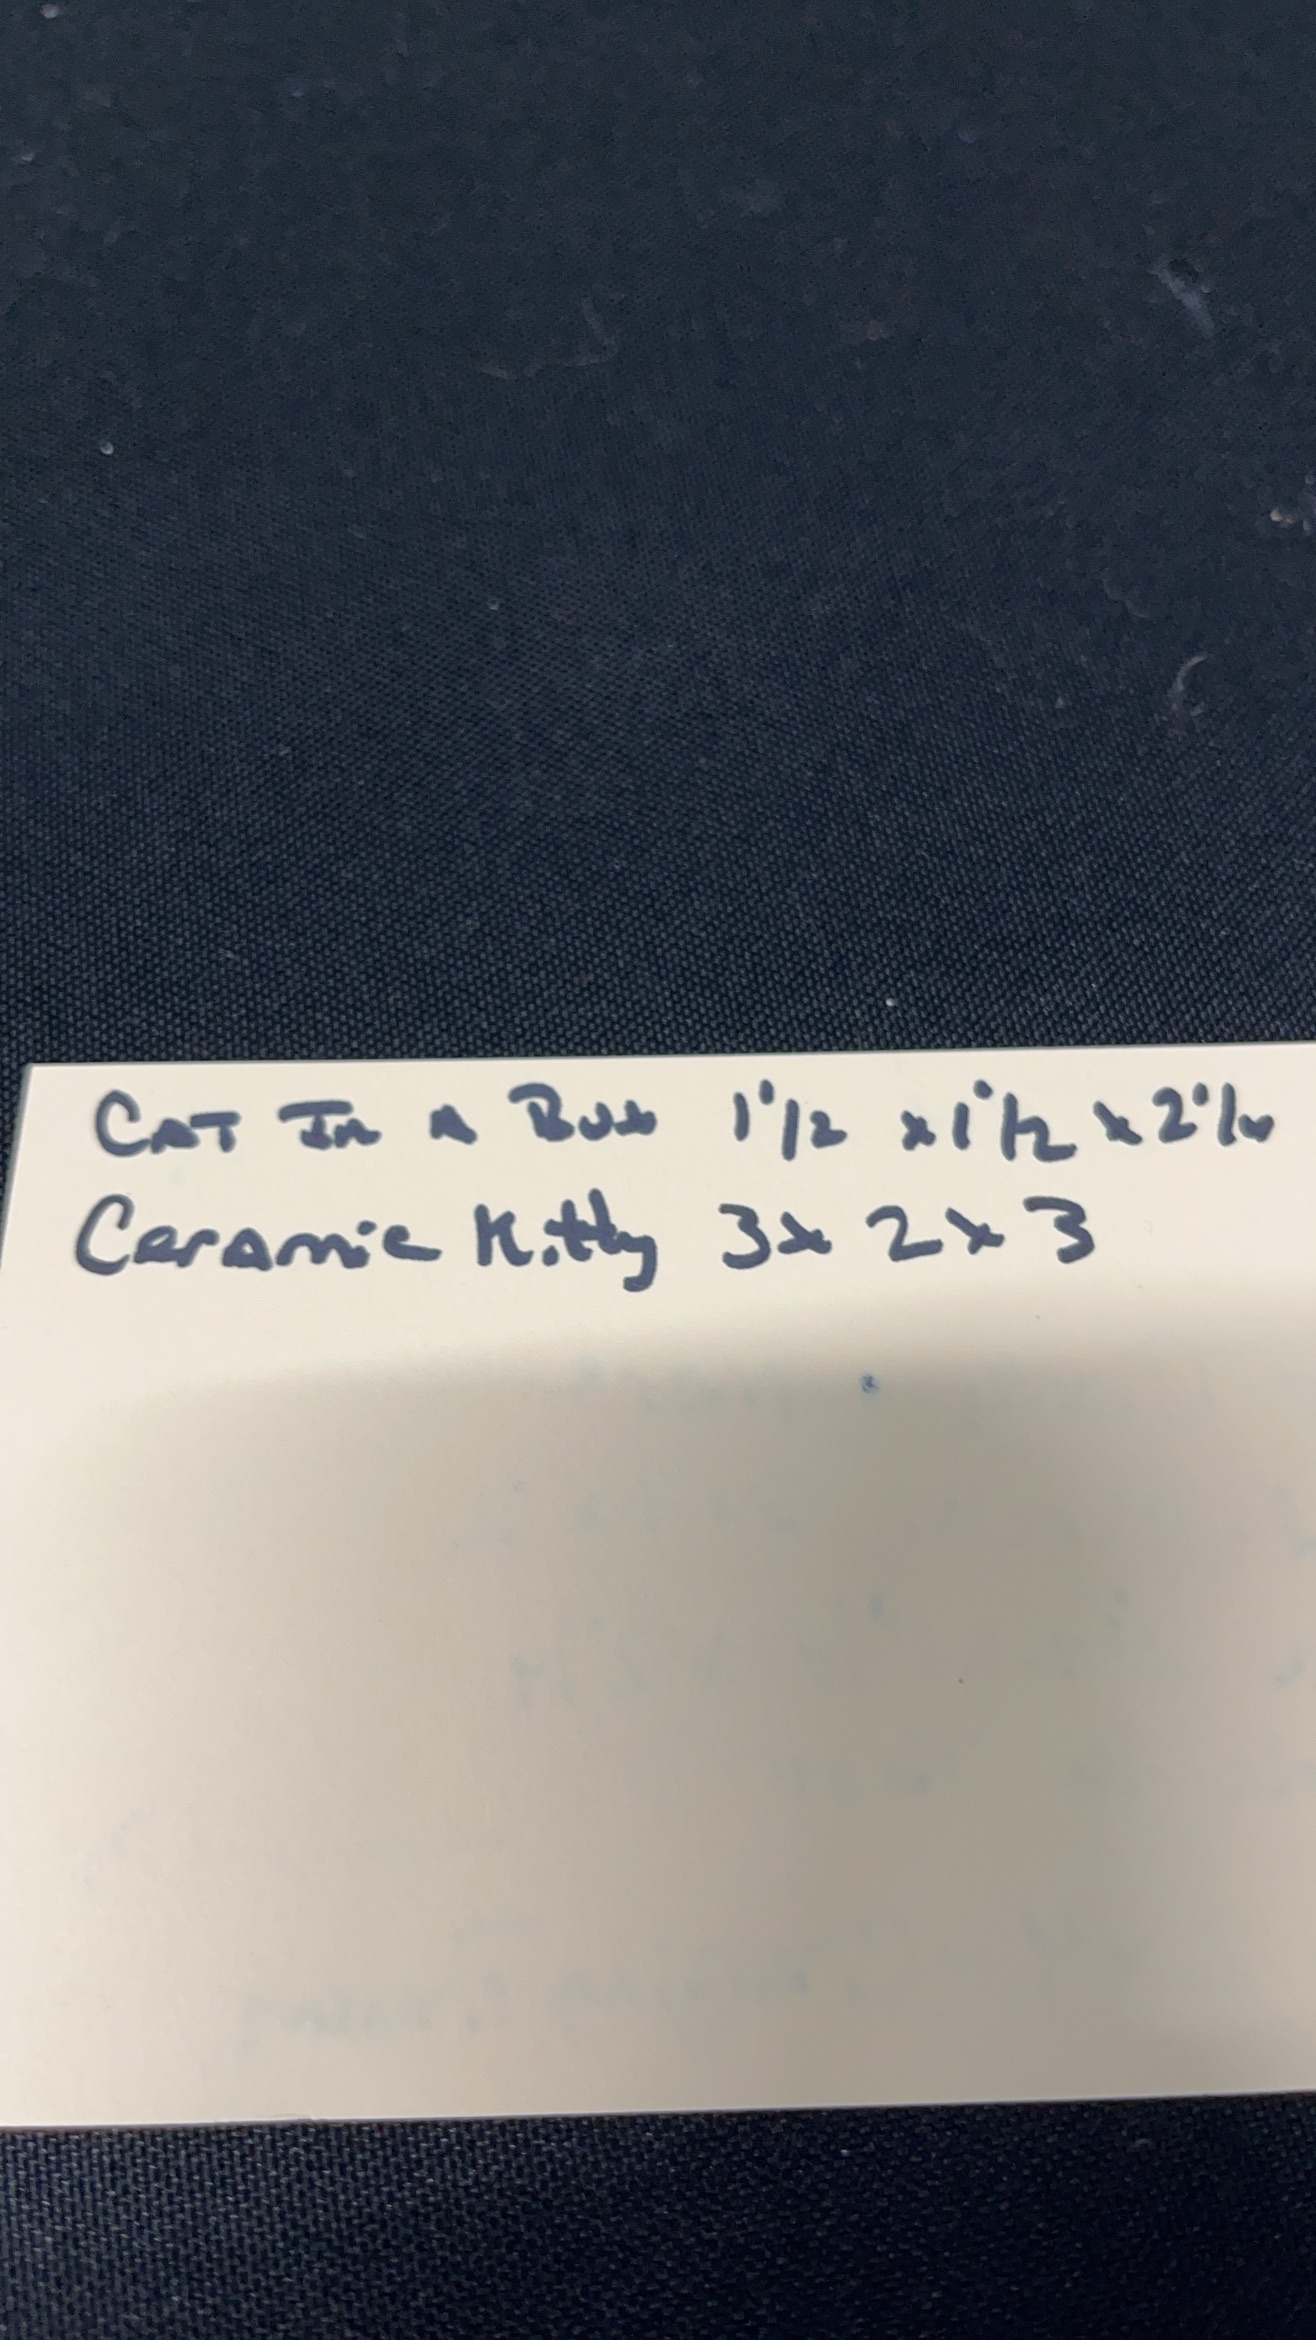 CAT In A Box 1 1/2 x 1 1/2 x 2 1/4
Ceramic Kitty 3x 2 x 3